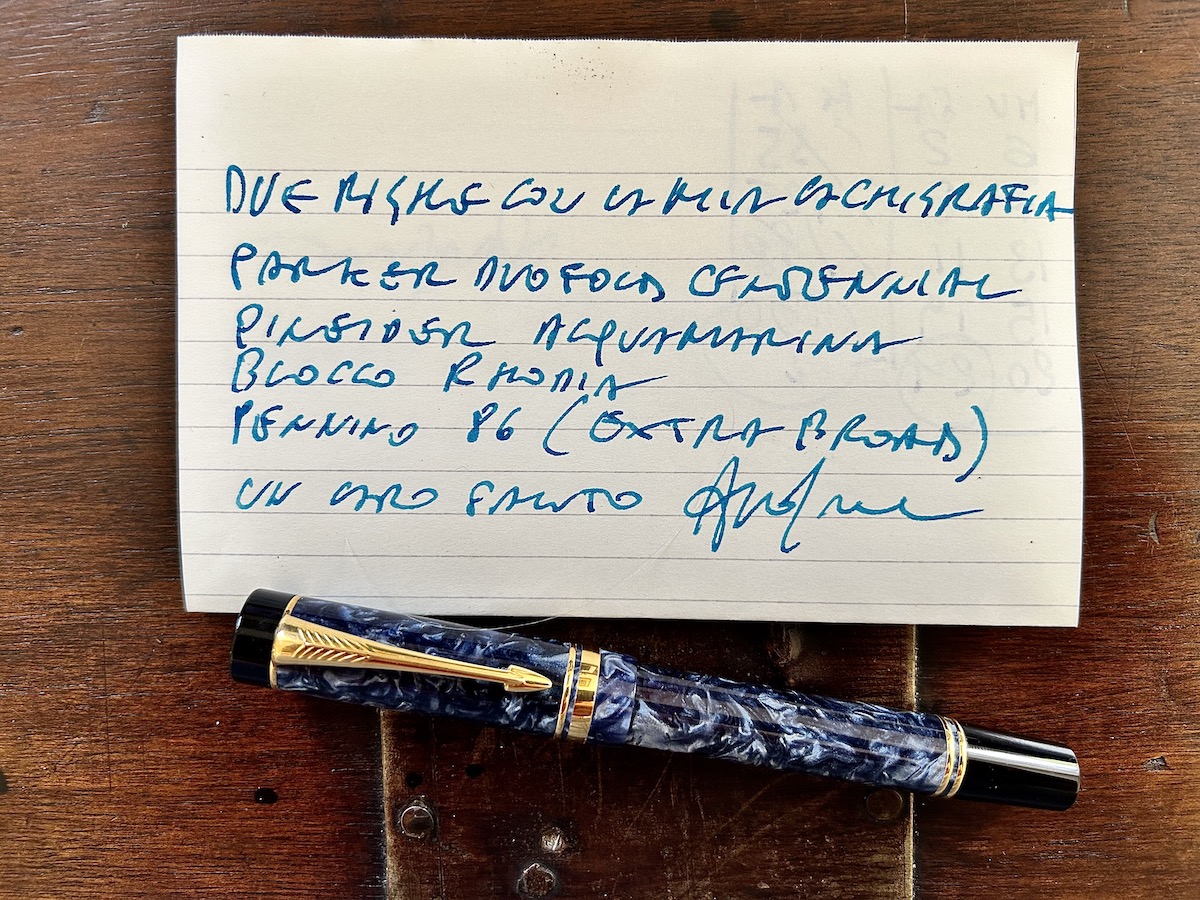 DUE RIGHE CON LA MIA CACHIGRAFIA
PARKER DUOFOLD CENTENNIAL
PINEIDER ACQUAMARINA
BLOCCO RHODIA
PENNINO 86 (EXTRA BROAD)
UN CARO SALUTO